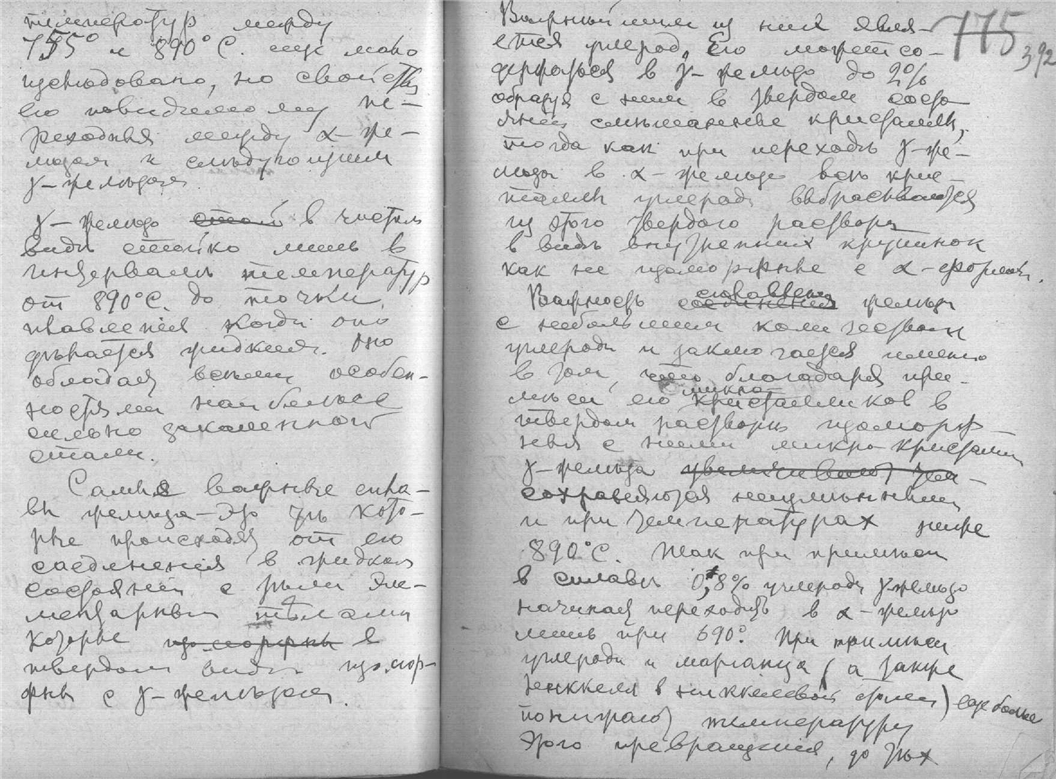 температур между
755° и 890°С. еще мало
изслѣдовано, но свойства
его повидимому пе-
реходныя между α-же-
лѣзом и слѣдующим
γ-желѣзом.
γ-желѣзо в чистом
видѣ стойко лишь в
интервалѣ температур
от 890°С. до точки
плавленія когда оно
дѣлается жидким. Оно
обладает всѣми особен-
ностями наиболѣе
сильно закаленной
стали.
Самые важные спла-
вы желѣза — это тѣ кото-
рые происходят от его
соединенія в жидком
состояніи с тѣми эле-
ментарными тѣлами
которые в
твердом видѣ изомор-
фны с γ-желѣзом.
775
392
Важнейшим из них явля-
ется углерод. Его может со-
держаться в γ-желѣзѣ до 2%
образуя с ним в твердом состо-
яніи смѣшанные кристаллы,
тогда как при переходѣ γ-же-
лѣза в α-желѣзо все крис-
таллы углерода выбрасываются
из этого твердаго раствора
в видѣ внутренних крупинок
как не изоморфные с α-формой.
Важность сплавления желѣза
с небольшим количеством
углерода и заключается именно
в том, что благодаря при-
мѣси его микро кристалликов в
твердом растворѣ изоморф-
ных с ними микро-кристаллы
γ-желѣза
сохраняются неизмѣнными
и при температурах ниже
890°С. Так при примѣси
в сплавѣ 0,8% углерода γ-желѣзо
начинает переходить в α-желѣзо
лишь при 690°. При примѣси
углерода и марганца (а также
никкеля в никкелевой стали) еще более
понижают температуру
этого превращения, до тѣх